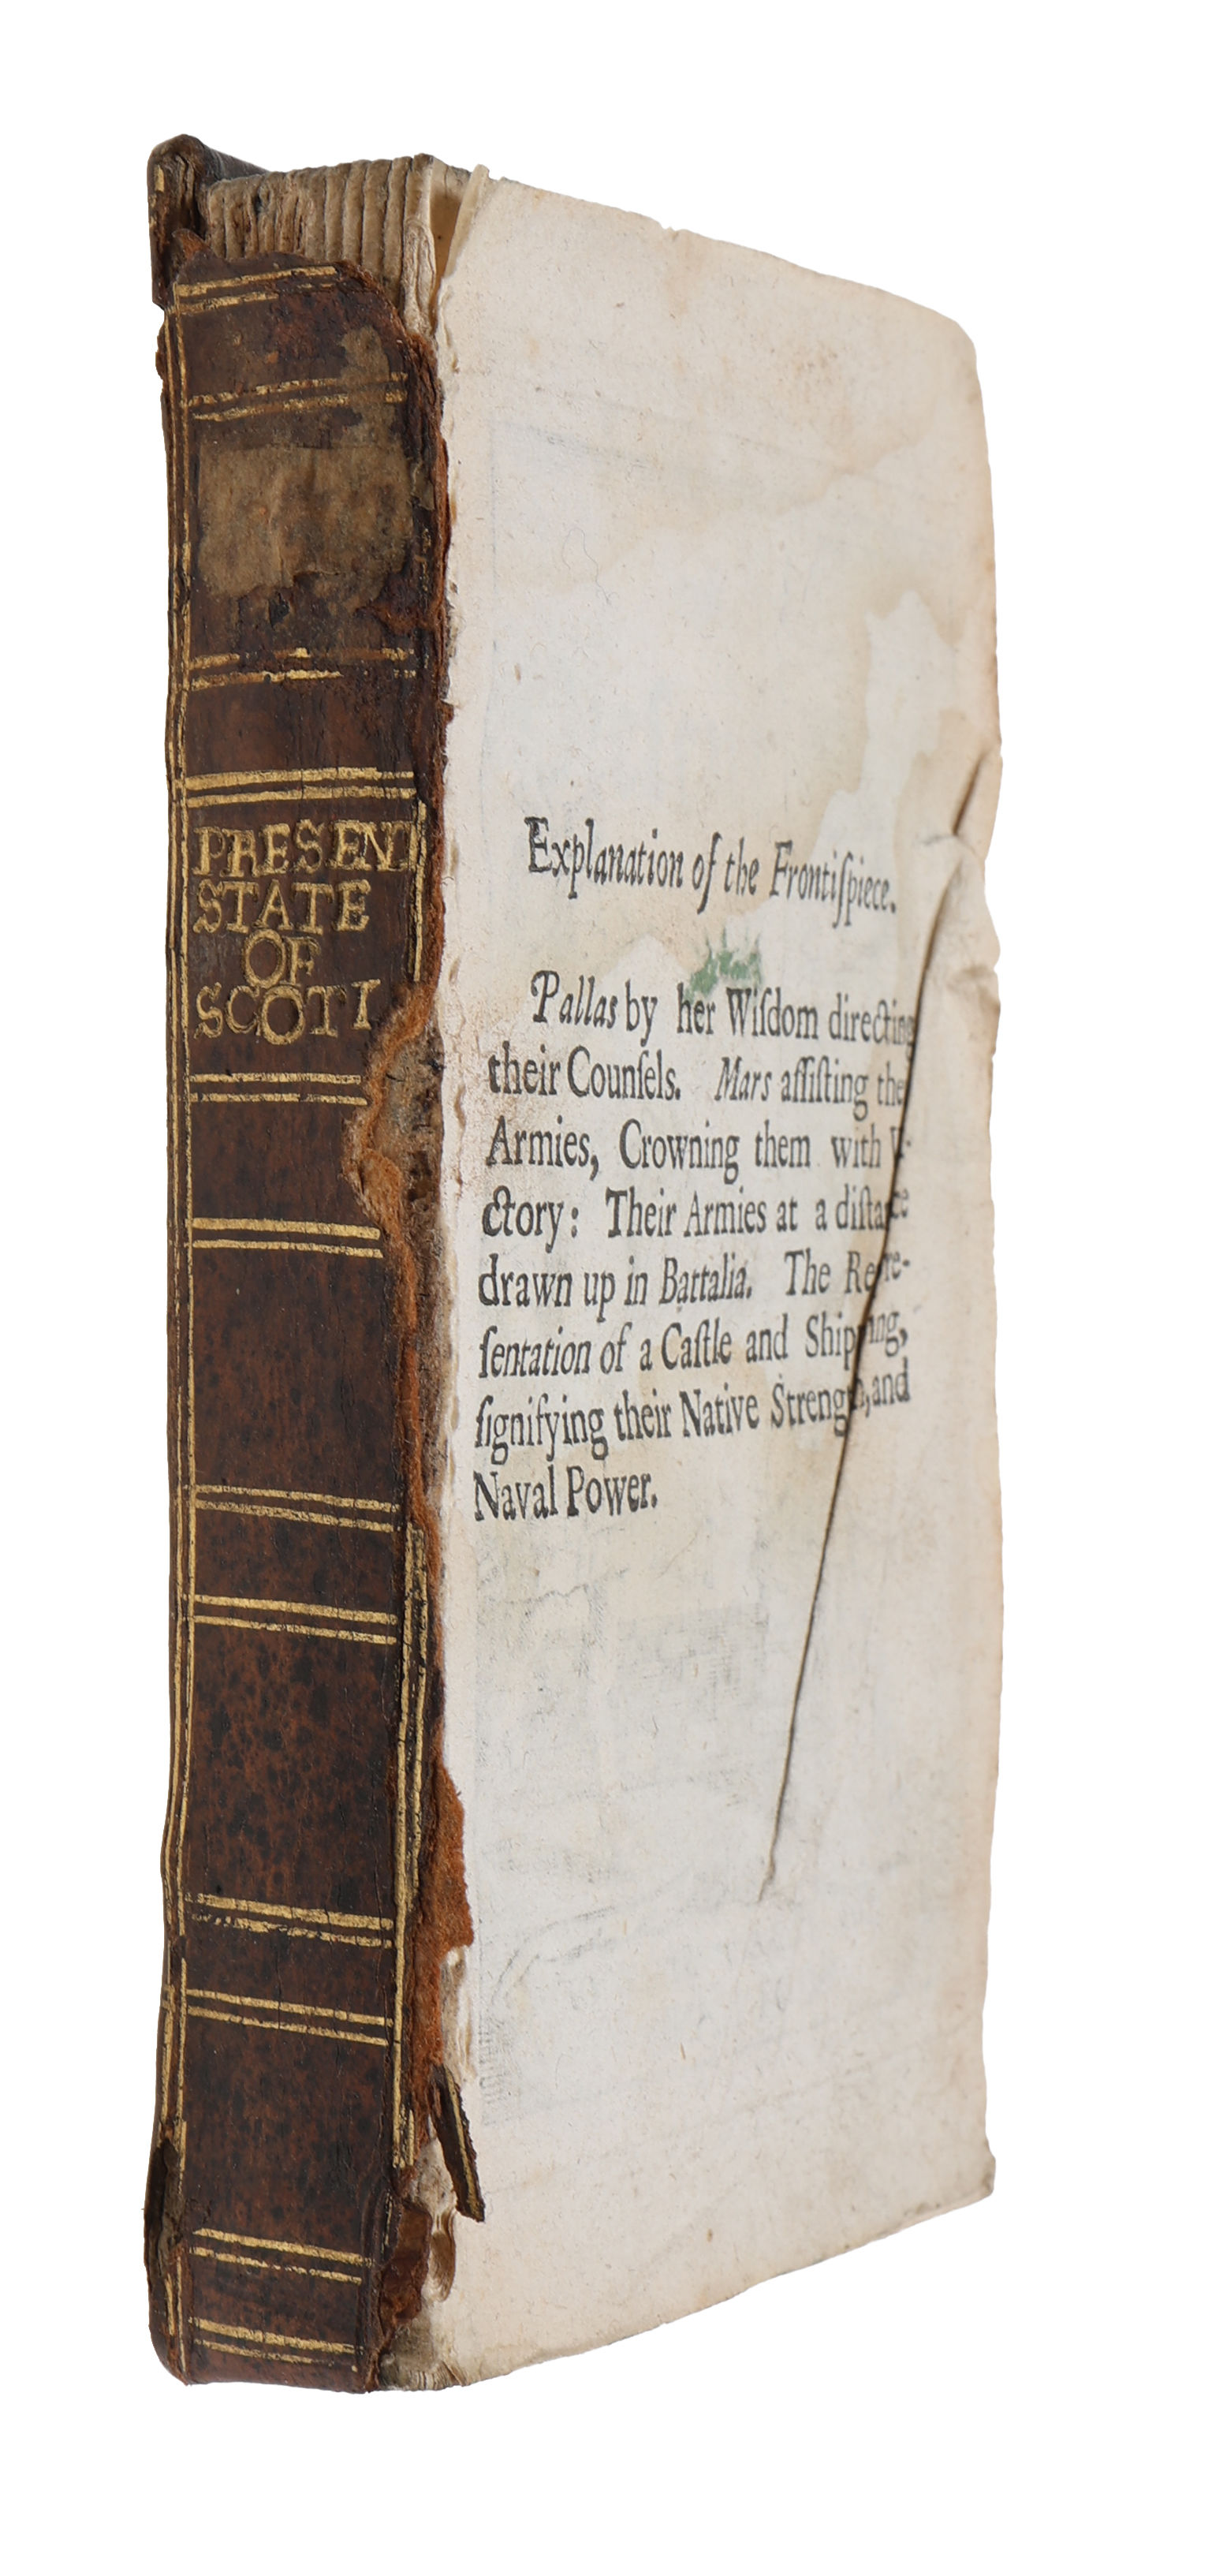 PRESENT
STATE
OF
SCOTI
Explanation of the Frontiſpiece.
Pallas by her Wiſdom directing
their Counſels. Mars aſſiſting the
Armies, Crowning them with
ctory: Their Armies at a diſtance
drawn up in Battalia. The Repre-
ſentation of a Caſtle and Shipping,
ſignifying their Native Strength, and
Naval Power.